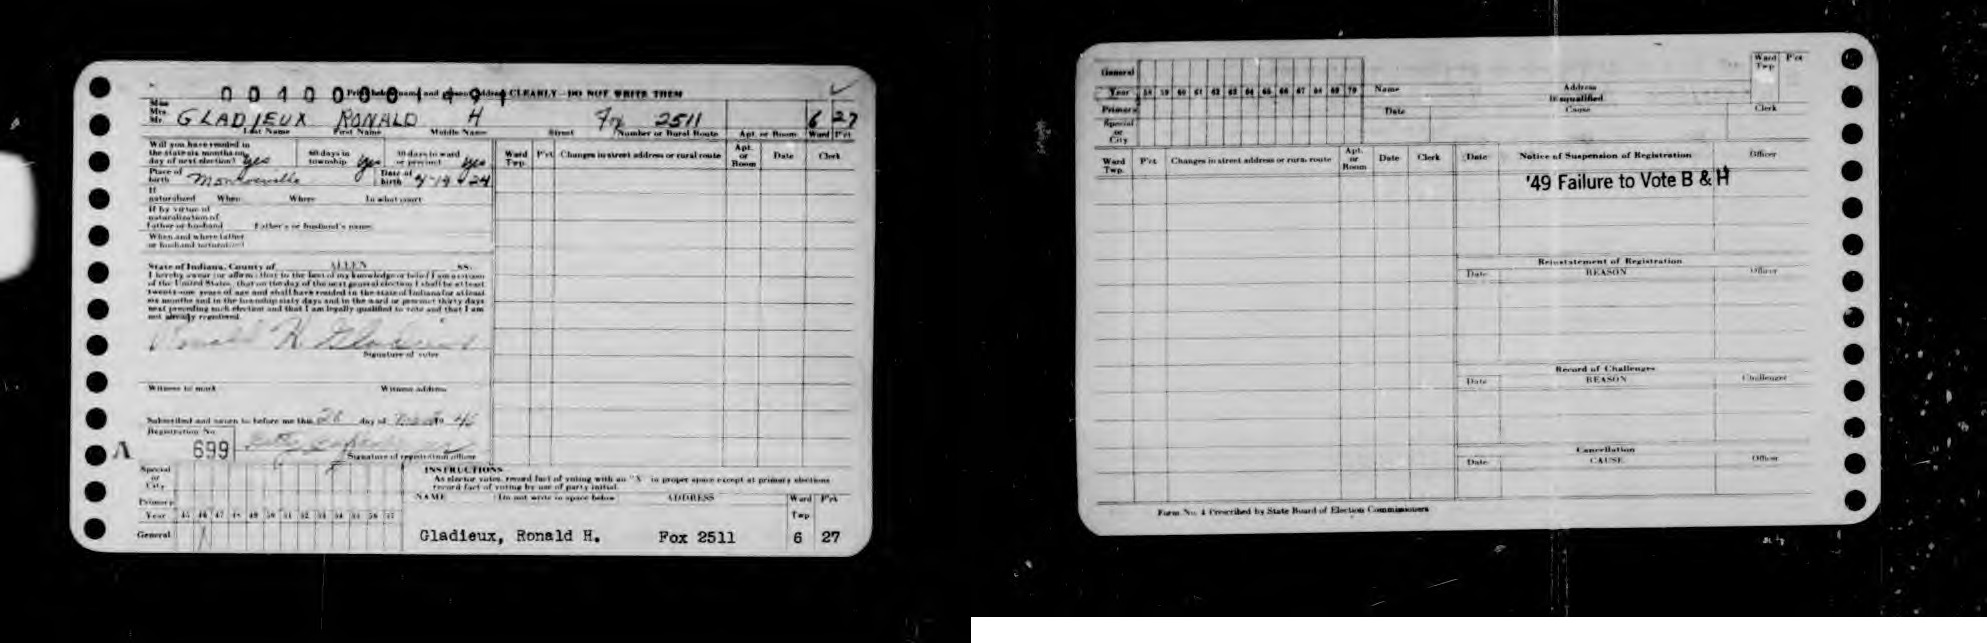 00400001494
Print below name and address CLEARLY - DO NOT WRITE THEM
Miss
Mrs.
Mr.
GLADIEUX RONALD H Fox 2511 6 27
Last Name First Name Middle Name Street Number or Rural Route Apt. or Room Ward P'ct
Will you have resided in
the state six months on
day of next election? yes
60 days in
township yes
30 days in ward
or precinct yes
Place of
birth Monroeville
Date of
birth 4-19-24
If
naturalized When Where In what court
If by virtue of
naturalization of
Father or husband Father's or husband's name
When and where father
or husband naturalized
State of Indiana, County of ALLEN SS:
I hereby swear (or affirm) that to the best of my knowledge or belief I am a citizen
of the United States, that on the day of the next general election I shall be at least
twenty-one years of age and shall have resided in the state of Indiana for at least
six months and in the township sixty days and in the ward or precinct thirty days
next preceding such election and that I am legally qualified to vote and that I am
not already registered.
Ronald H. Gladieux
Signature of voter
Witness to mark Witness address
Subscribed and sworn to before me this 28 day of 19 46
Registration No.
A 699
Signature of registration officer
Ward
Twp. P'ct. Changes in street address or rural route Apt.
or
Room Date Clerk
Special
or
City
Primary
Year 45 46 47 48 49 50 51 52 53 54 55 56 57
General
INSTRUCTIONS
As elector votes, record fact of voting with an "X" in proper space except at primary elections
record fact of voting by use of party initial.
NAME (Do not write in space below) ADDRESS Ward
Twp P'ct
Gladieux, Ronald H. Fox 2511 6 27
General
Year 58 59 60 61 62 63 64 65 66 67 68 69 70
Primary
Special
or
City
Name Address
Disqualified
Date Cause Clerk
Ward
Twp P'ct
Ward
Twp. P'ct. Changes in street address or rural route Apt.
or
Room Date Clerk
Date Notice of Suspension of Registration Officer
'49 Failure to Vote B & H
Reinstatement of Registration
Date REASON Officer
Record of Challenges
Date REASON Challenger
Cancellation
Date CAUSE Officer
Form No. 4 Prescribed by State Board of Election Commissioners